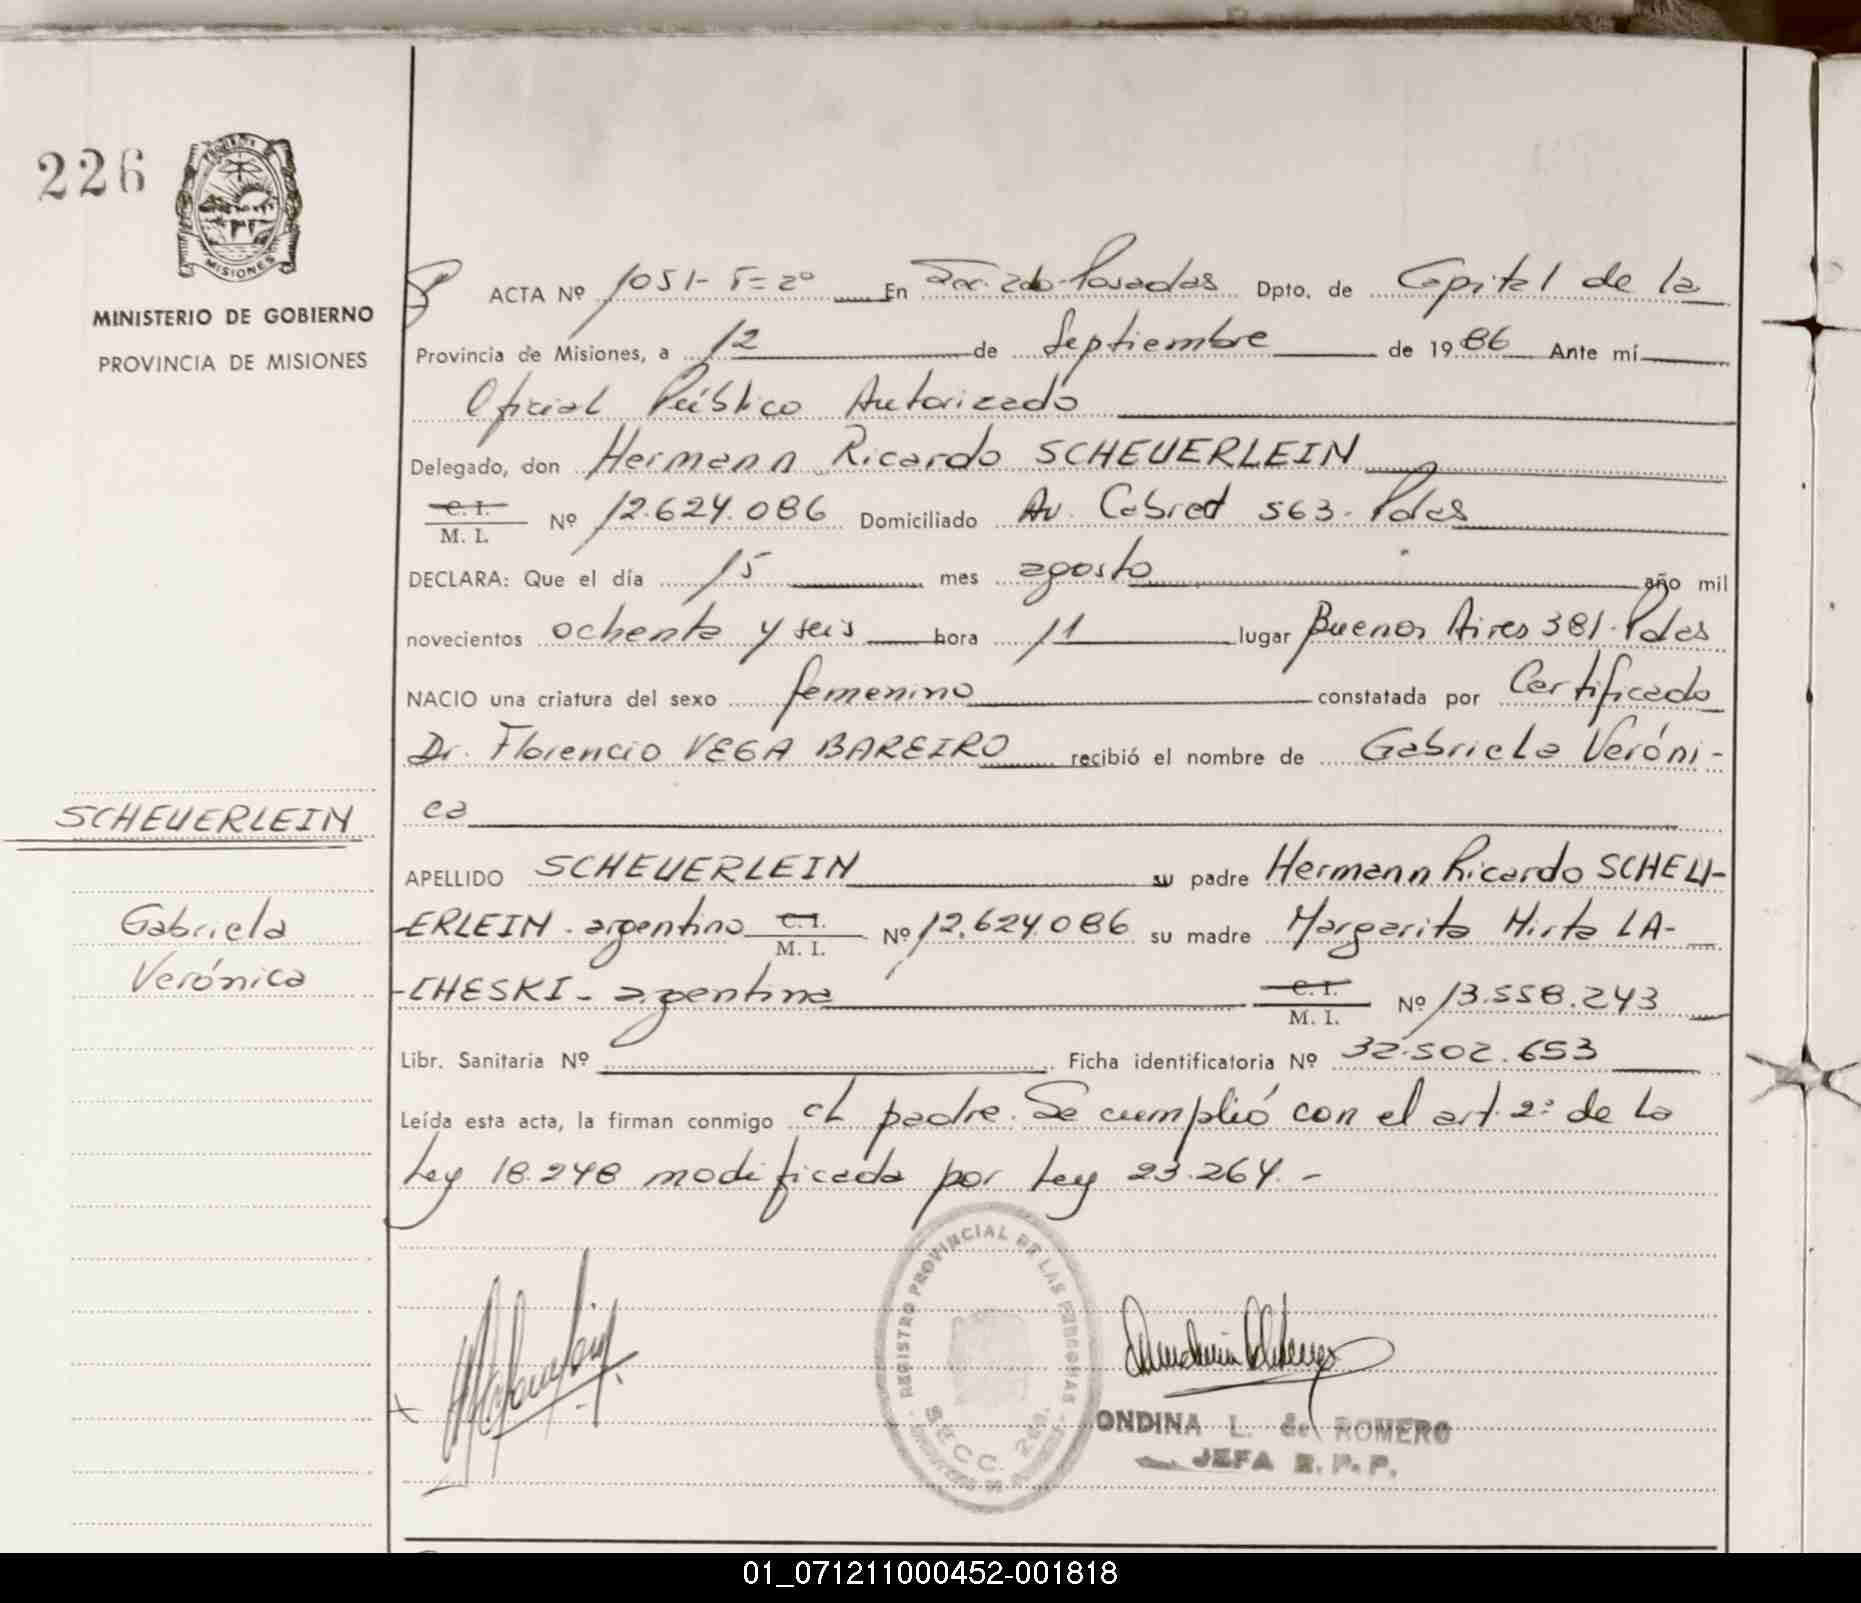 226
MISIONES
MINISTERIO DE GOBIERNO
PROVINCIA DE MISIONES
ACTA Nº 1051-T=2º En Sec. 2da. Posadas Dpto. de Capital de la
Provincia de Misiones, a 12 de Septiembre de 1986 Ante mí
Oficial Público Autorizado
Delegado, don Hermann Ricardo SCHEUERLEIN
C. I.
M. I. Nº 12.624.086 Domiciliado Av. Cabred 563. Pdas
DECLARA: Que el día 15 mes agosto año mil
novecientos ochenta y seis hora 11 lugar Buenos Aires 381. Pdas
NACIO una criatura del sexo femenino constatada por Certificado
Dr. Florencio VEGA BAREIRO recibió el nombre de Gabriela Veróni-
ca
SCHEUERLEIN
Gabriela
Verónica
APELLIDO SCHEUERLEIN su padre Hermann Ricardo SCHEU-
-ERLEIN - argentino C. I. M. I. Nº 12.624.086 su madre Margarita Mirta LA-
-CHESKI - argentina C. I. M. I. Nº 13.558.243
Libr. Sanitaria Nº Ficha identificatoria Nº 32.502.653
Leída esta acta, la firman conmigo el padre. Se cumplió con el art. 2º de la
Ley 18.248 modificada por Ley 23.264. -
REGISTRO PROVINCIAL DE LAS PERSONAS
SECC. 2da.
ONDINA L. de ROMERO
JEFA R. P. P.
01_071211000452-001818